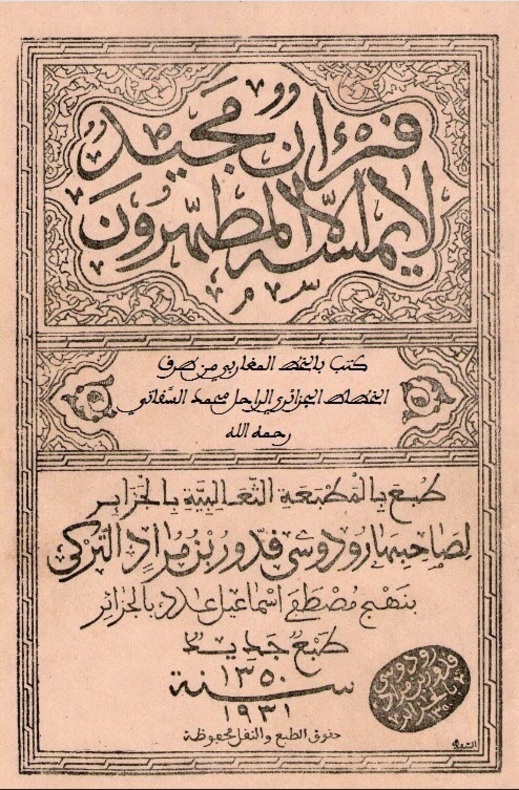 قرءان مجيد
لا يمسه إلا المطهرون
كتب بالخط المغاربي من طرف
الخطاط الجزائري الراحل محمد السفاتي
رحمه الله
طبع بالمطبعة الثعالبية بالجزاير
لصاحبها رودوسي قدور بن مراد التركي
بنهج مصطفى اسماعيل عدد بالجزائر
طبع جديد
١٣٥٠
سنة
١٩٣١
حقوق الطبع والنقل محفوظة
رودوسي
قدور بن مراد